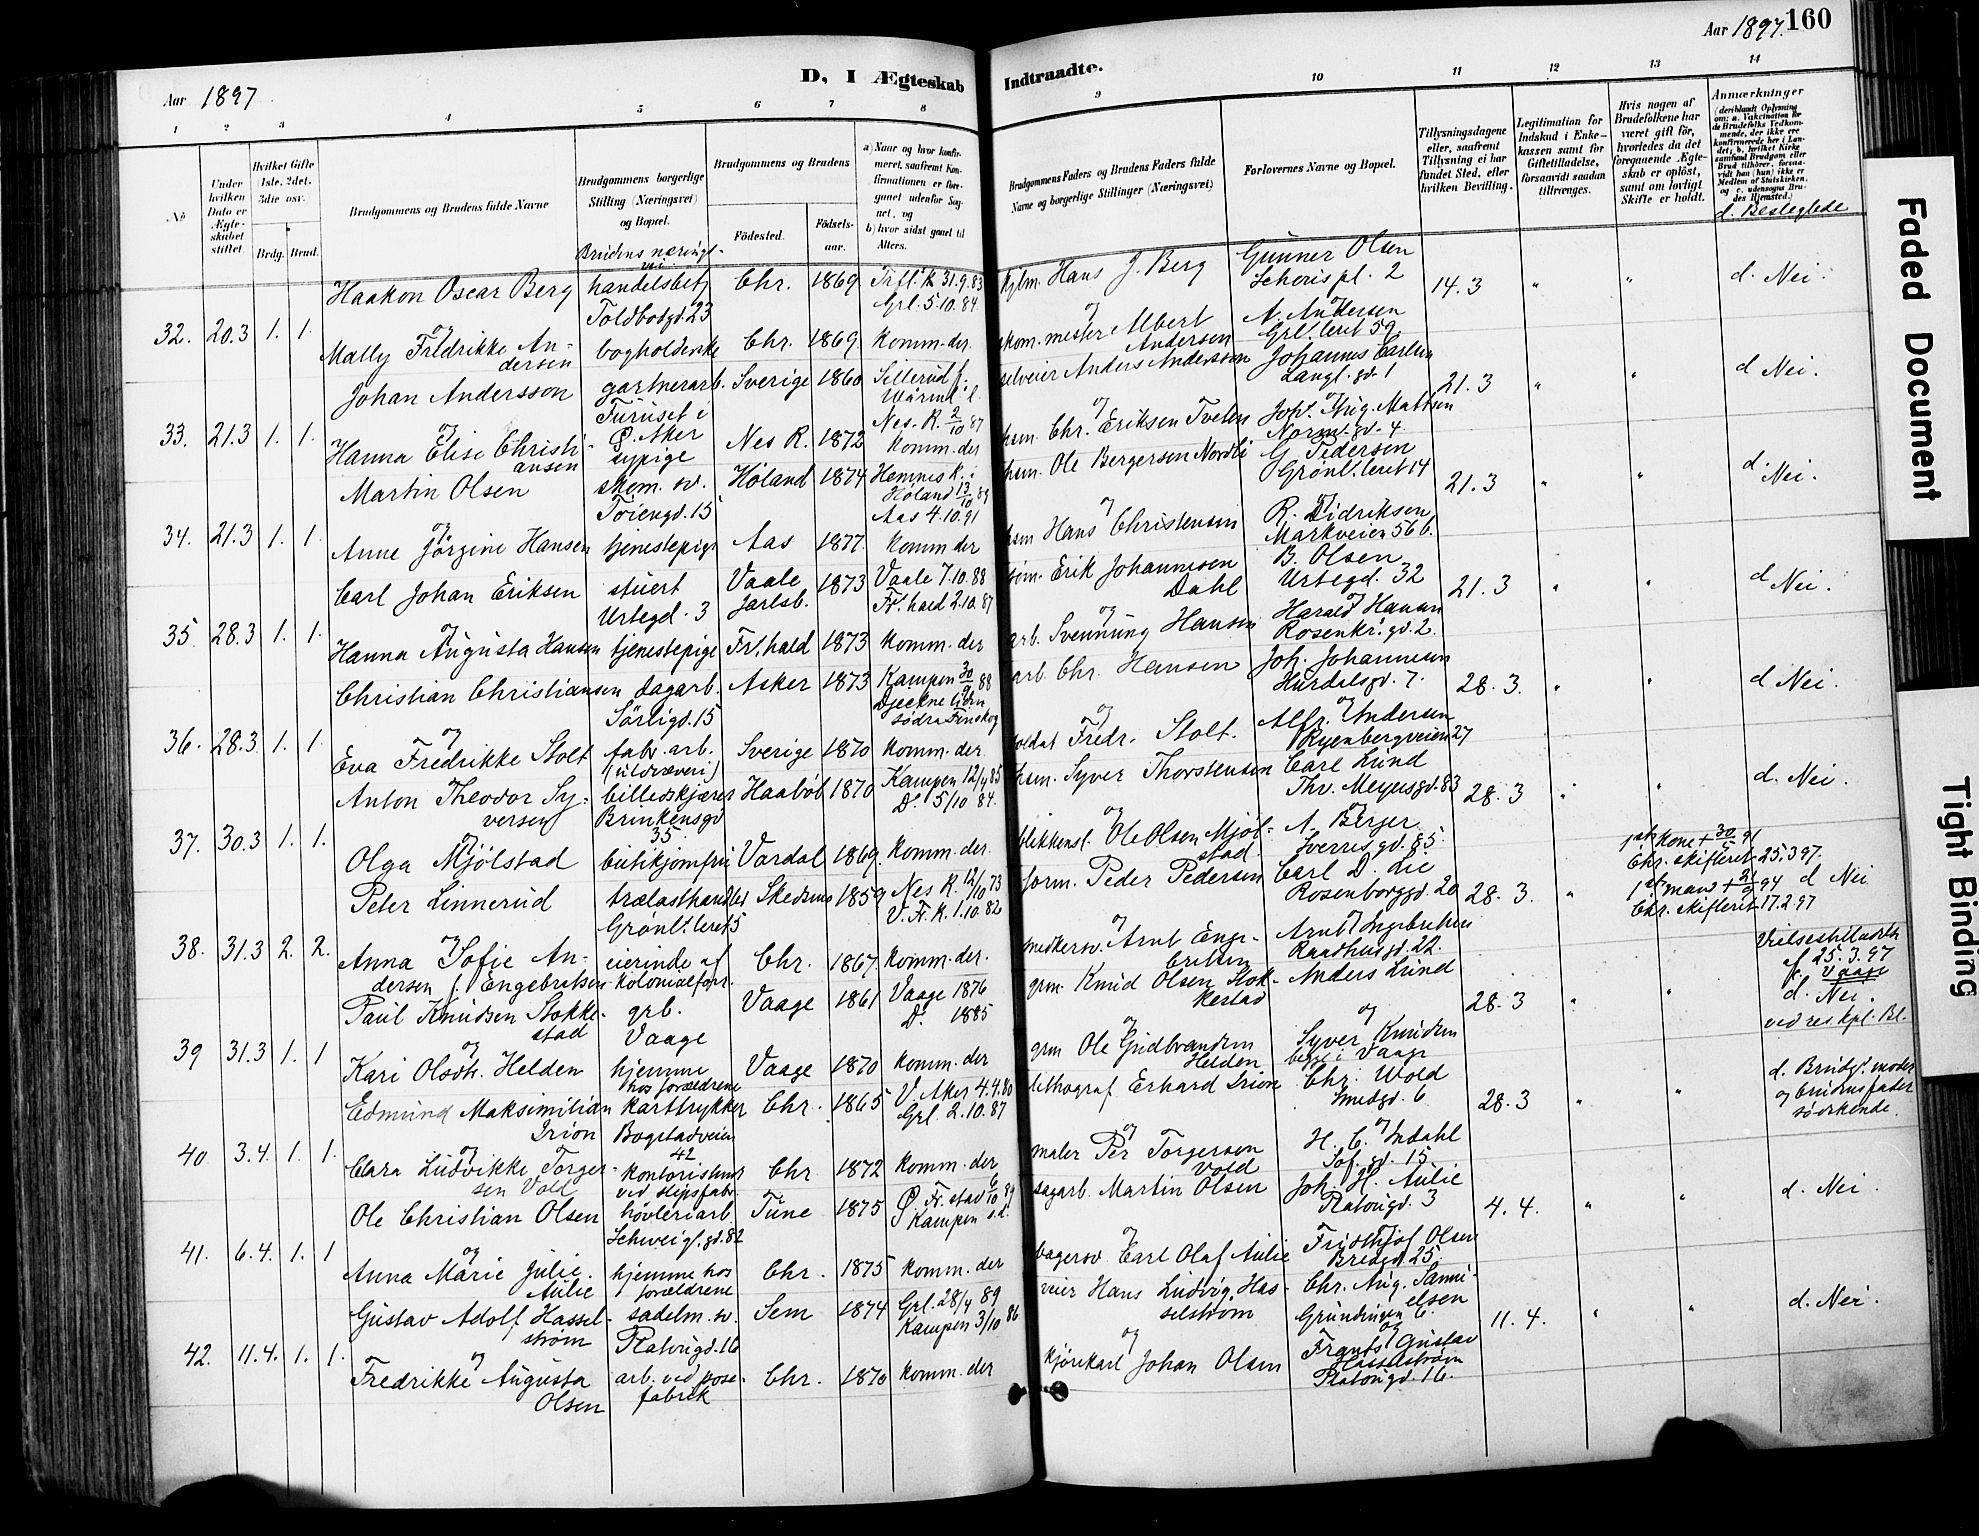 Aar 1897.
160
Aar 1897
D, I Ægteskab
Indtraadte.
1 2 3 4 5 6 7 8 9 10 11 12 13 14
No
Under hvilken Dato er Ægteskabet stiftet.
Hvilket Gifte 1ste, 2det, 3die osv.
Brdg. Brud.
Brudgommens og Brudens fulde Navne
Brudgommens borgerlige Stilling (Næringsvei) og Bopæl.
Brudens næringsvei
Brudgommens og Brudens
Fødested.
Fødselsaar.
a) Naar og hvor konfirmeret, saafremt Konfirmationen er foregaaet udenfor Sognet, og
b) hvor sidst gaaet til Alters.
Brudgommens Faders og Brudens Faders fulde Navne og borgerlige Stillinger (Næringsvei)
Forlovernes Navne og Bopæl.
Tillysningsdagene eller, saafremt Tillysning ei har fundet Sted, efter hvilken Bevilling.
Legitimation for Indskud i Enkekassen samt for Giftetilladelse, forsaavidt saadan tiltrænges.
Hvis nogen af Brudefolkene har været gift før, hvorledes da det foregaaende Ægteskab er opløst, samt om lovligt Skifte er holdt.
Anmærkninger
d. Beslegtede
32. 20.3 1. 1.
Haakon Oscar Berg handelsbetj Chr. 1869 Trefl. k 31.9.83
Toldbodgd. 23 Grl. 5.10.84
og
Mally Fredrikke Andersen bogholderske Chr. 1869. komm. der
Hans J. Berg Gunner Olsen
Schouspl. 2 14.3 " " d. Nei.
og
skom. mester Albert Andersen A. Andersen
Grl. leret 59
33. 21.3 1. 1.
Johan Andersson gartnerarb. Sverige 1860 Sillerud f.
Furuset i Ø. Aker
og
Hanna Elise Christiansen sypige Nes R. 1872 Nes. R. 2/10 87
komm. der
selveier Anders Andersson Johannes Carlsen
Langl. gd. 1 21.3 " " d Nei.
og
hsm. Chr. Eriksen Tveten Joh. Thug. Mattsen
Norm. gd. 4
34. 21.3 1. 1.
Martin Olsen skom. sv. Høland 1874 Hemnes K. i
Tøiengd. 15 Høland 13/10 89
og Aas 4.10.91
Anne Jørgine Hansen tjenestepige Aas 1877. komm der
hsm. Ole Bergersen Nordli G Pedersen
Grønl. leret 14 21.3 " " d. Nei.
og
hsm Hans Christensen R. Didriksen
Markveien 56 b.
35. 28.3 1. 1.
Carl Johan Eriksen stuert Vaale Jarlsb. 1873 Vaale 7.10.88
Urtegd. 3 Fr. hald 2.10.87
og
Hanna Augusta Hansen tjenestepige Fr. hald 1873 komm. der
Erik Johannesen Dahl B. Olsen
Urtegd. 32 21.3 " " d Nei.
og
arb. Svennung Hansen Harald Hansen
Rosenkr. gd. 2.
36. 28.3 1. 1
Christian Christiansen dagarb. Asker 1873 Kampen 30/9 88
Sørligd. 15 södra Finskog
og
Eva Fredrikke Stolt fabr. arb. Sverige 1870 komm. der
(uldvæveri)
arb. Chr. Hansen Joh. Johannesen
Hurdalsgd. 7. 28.3. " " d Nei.
og
soldat Fredr. Stolt. Alfr. Andersen
Ryenbergveien 27
37. 30.3 1. 1.
Anton Theodor Syversen billedskjærer Haabøl 1870 Kampen 12/4 85
Brinkensgd 35. Do 5/10 84.
og
Olga Mjølstad butikjomfru Vardal 1869. komm. der.
hsm. Syver Thorstensen Carl Lund
Thv. Meyersgd. 83 28.3 " " d. Nei.
og
blikkensl. Ole Olsen Mjølstad A. Berger
Sverresgd. 85.
38. 31.3 2. 2.
Peter Linnerud trælasthandler Skedsmo 1859 Nes R. 12/10 73
Grønl. leret 5 V. Fr. K. 1.10.82
og
Anna Sofie Andersen f. Engebretsen eierinde af kolonialforr. Chr. 1867. komm. der.
form. Peder Pedersen Carl D. Lie
Rosenborggd. 20 28.3. "
1ste kone + 30/5 91
Chr. skifteret 25.3 97.
1ste mand + 21/9 94 d Nei
Chr. skifteret 17.2.97
og
snedkersv. Arnt Engebretsen Arnt Ingebretsen
Raadhusgd. 22.
39 31.3 1. 1
Paul Knudsen Stokkestad grb. Vaage Vaage 1861 Vaage 1876
Do. 1885
og
Kari Olsdtr. Helden hjemme hos forældrene Vaage 1870 komm. der
grm. Knud Olsen Stokkestad Anders Lund 28.3 " "
Vielsesattest
af 25.3.97
fr. Vaage
d. Nei.
ved res. kpl. Bl.
og
grm Ole Gudbrandsen Helden Syver Knudsen
begge i Vaage
40 3.4. 1. 1.
Edmund Maksimilian Irion karttrykker Chr. 1865 V. Aker 4.4.80
Bogstadveien 42 Grl. 2.10.87
og
Clara Ludvikke Torgersen Vold kontoristinde ved slipsfabr. Chr 1872 komm. der
lithograf Erhard Irion Chr. Wold
Smedgd. 6 28.3 " "
d. Brudg. moder
og brudens fader
søskende.
og
maler Per Torgersen Vold H. C. Indahl
Sof. gd. 15
41. 6.4. 1. 1
Ole Christian Olsen høvleriarb. Tune 1875 Ø Fr. stad 6/10 89
Schweig. gd. 82 Kampen s.d.
og
Anna Marie Julie Aulie hjemme hos forældrene Chr. 1875 komm. der
sagarb. Martin Olsen Joh. H. Aulie
Platougd. 3 4.4. " " d. Nei.
og
bagersv Carl Olaf Aulie Fridthjof Olsen
Bredgd 25.
42. 11.4. 1. 1.
Gustav Adolf Hasselstrøm sadelm. sv. Sem 1874 Grl. 28/4 89
Platougd. 16 Kampen 3/10 86
og
Fredrikke Augusta Olsen arb. ved posefabrik Chr. 1870 komm. der
Hans Ludvig Hasselstrøm Chr. Aug. Samuelsen
Gründingen 6. 11.4. " " d. Nei.
og
kjørekarl Johan Olsen Frants Gustav Hasselstrøm
Platougd. 16.
Faded Document
Tight Binding